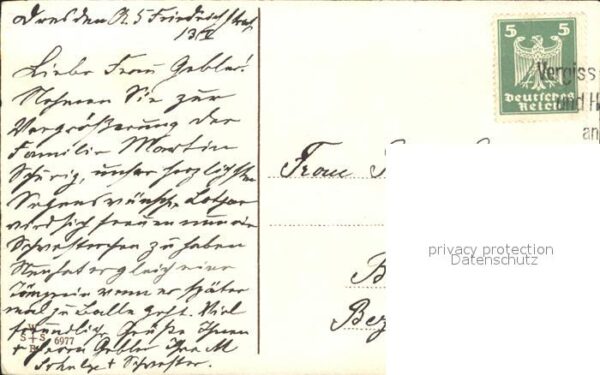 Dresden A. 5 Friedrichstraß
13/I
Liebe Frau Gebler!
Nehmen Sie zur
Vergrößerung der
Familie Martin
Schurig, unser herzlichsten
Segenswünsche Lothar
wird sich freuen nun ein
Schwesterchen zu haben
Nun hat er gleich eine
wenn er später
mal zu Balle geht. Viel
freundliche Grüße Ihnen
+ Herrn Gebler Ihre M
Schulze + Schwester.
W
S+S
B
6977
5 5
Deutsches
Reich
Vergiss
und H
an
Frau
B
Bez
privacy protection
Datenschutz